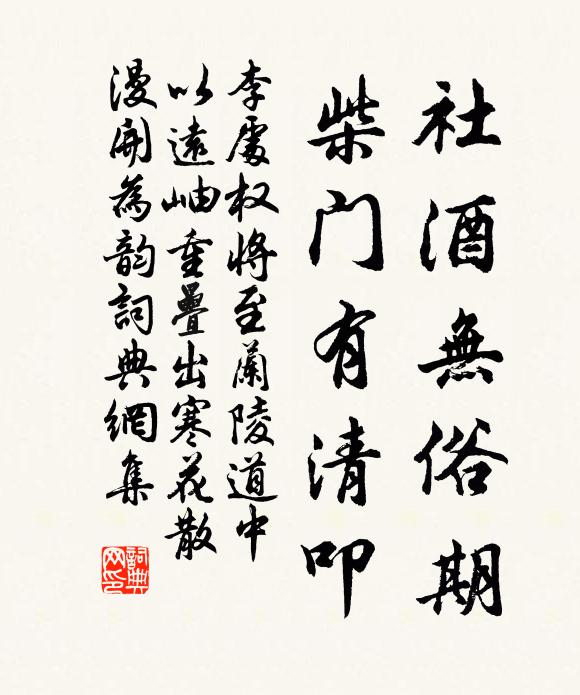 社酒無俗期
柴门有清叩
李處权將至蘭陵道中
以遠岫重疊出寒花散
漫開為韵詞典網集
詞典
网印